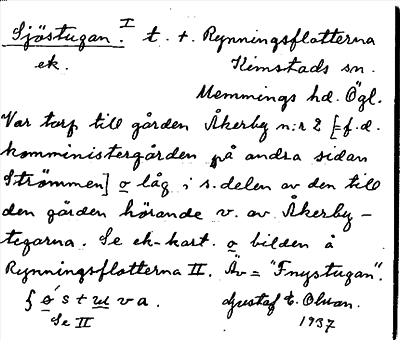 Sjöstugan. I t. + Rynningsflatterna
ek. Kimstads sn.
Memmings hd. Ögl.
Var torp till gården Åkerby n:r 2 [= f.d.
komministergården på andra sidan
Strömmen] o låg i s. delen av den till
den gården hörande v. av Åkerby-
tegarna. Se ek-kart. o bilden å
Rynningsflatterna II. Äv = "Fnystugan".
Se II Gustaf E. Olsson.
1937